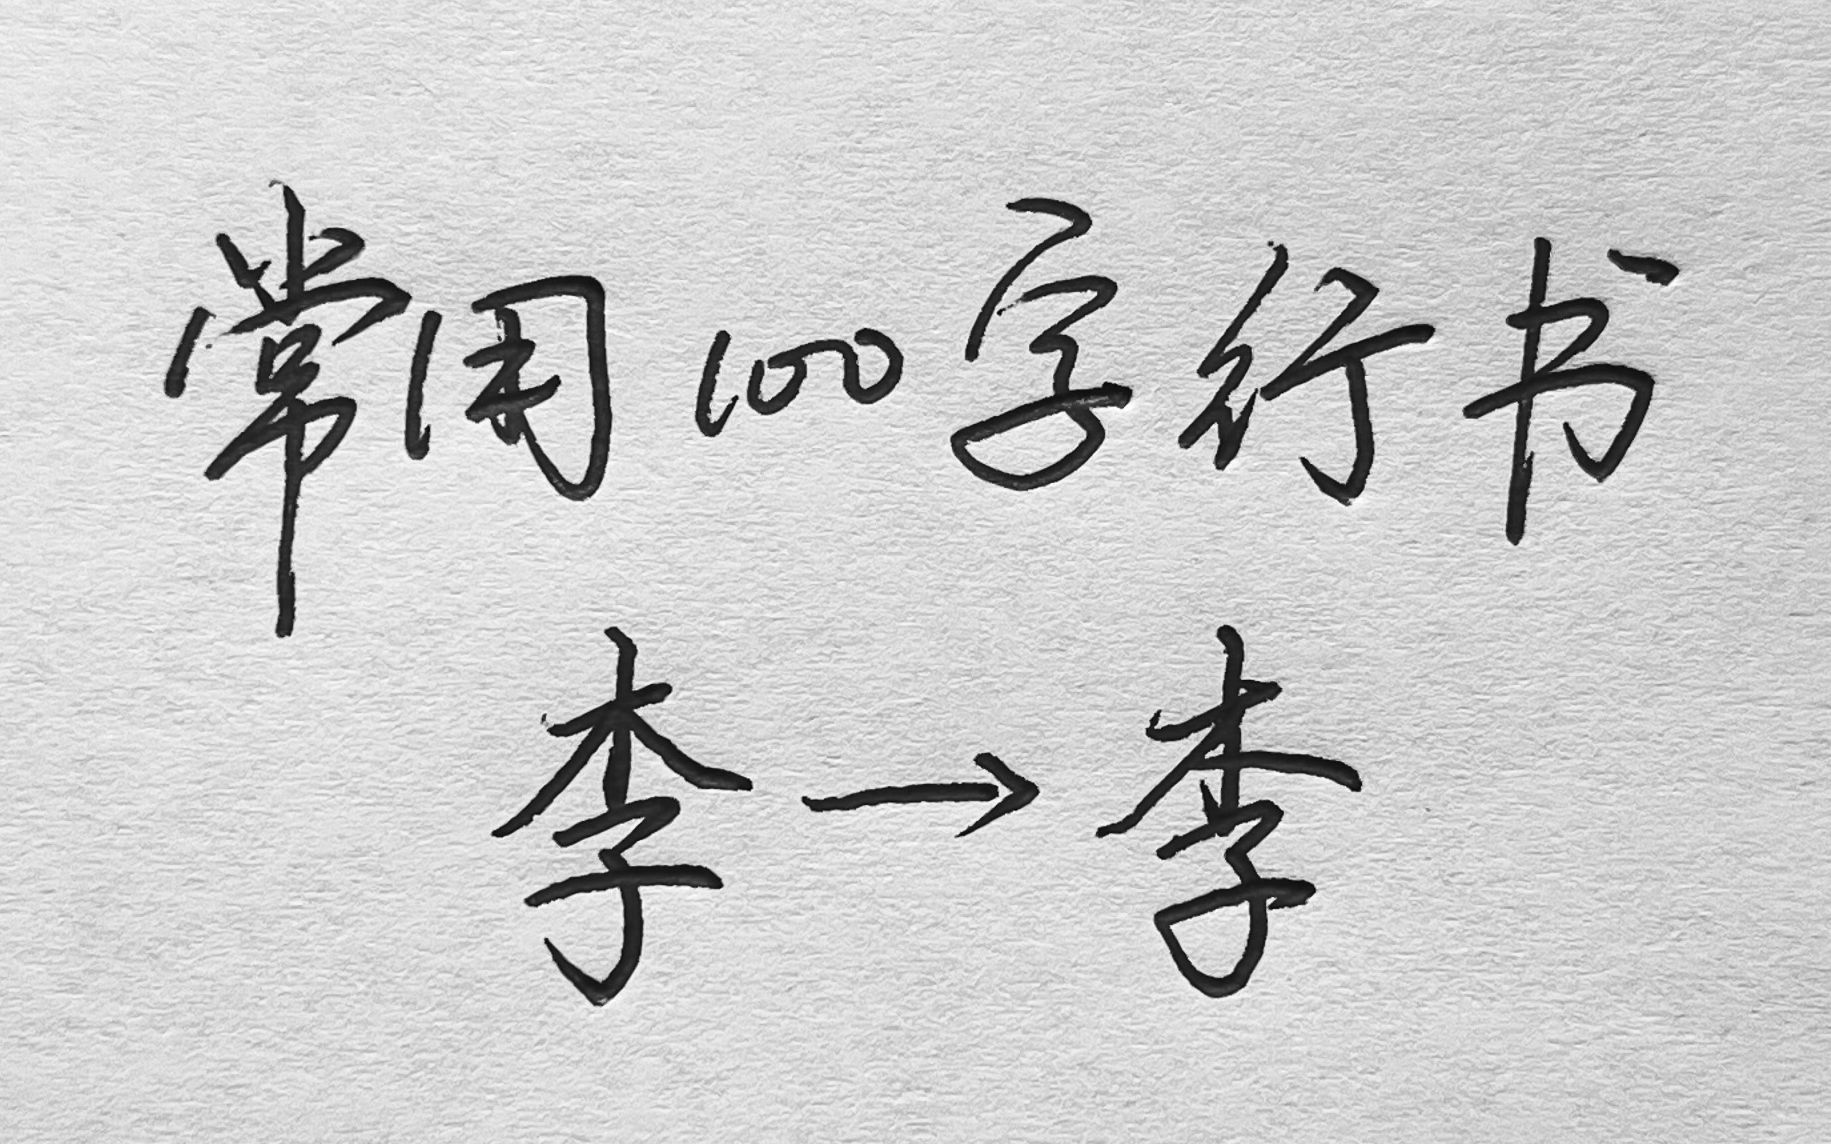 常用100字行书
李→李